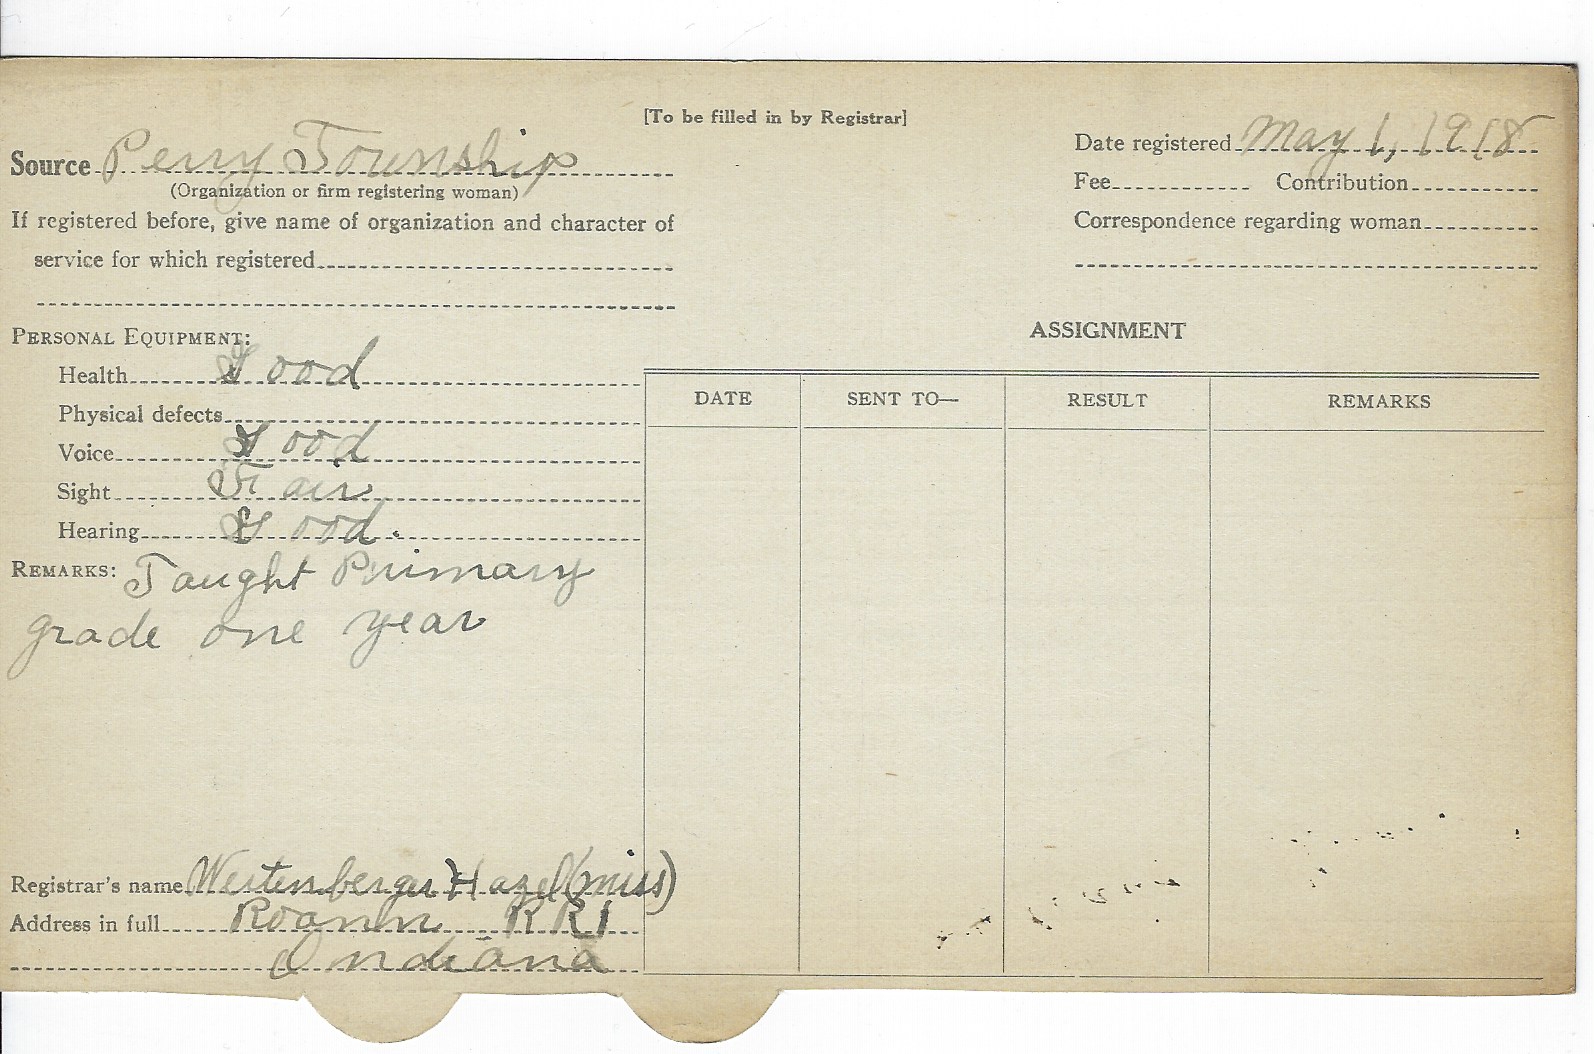 [To be filled in by Registrar]
Source Perry Township
(Organization or firm registering woman)
If registered before, give name of organization and character of
service for which registered
Date registered May 1, 1918
Fee Contribution
Correspondence regarding woman
PERSONAL EQUIPMENT:
Health Good
Physical defects
Voice Good
Sight Fair
Hearing Good.
REMARKS: Taught Primary
grade one year
ASSIGNMENT
DATE SENT TO— RESULT REMARKS
Registrar's name Westenberger Hazel (miss)
Address in full Roann RR1
Indiana